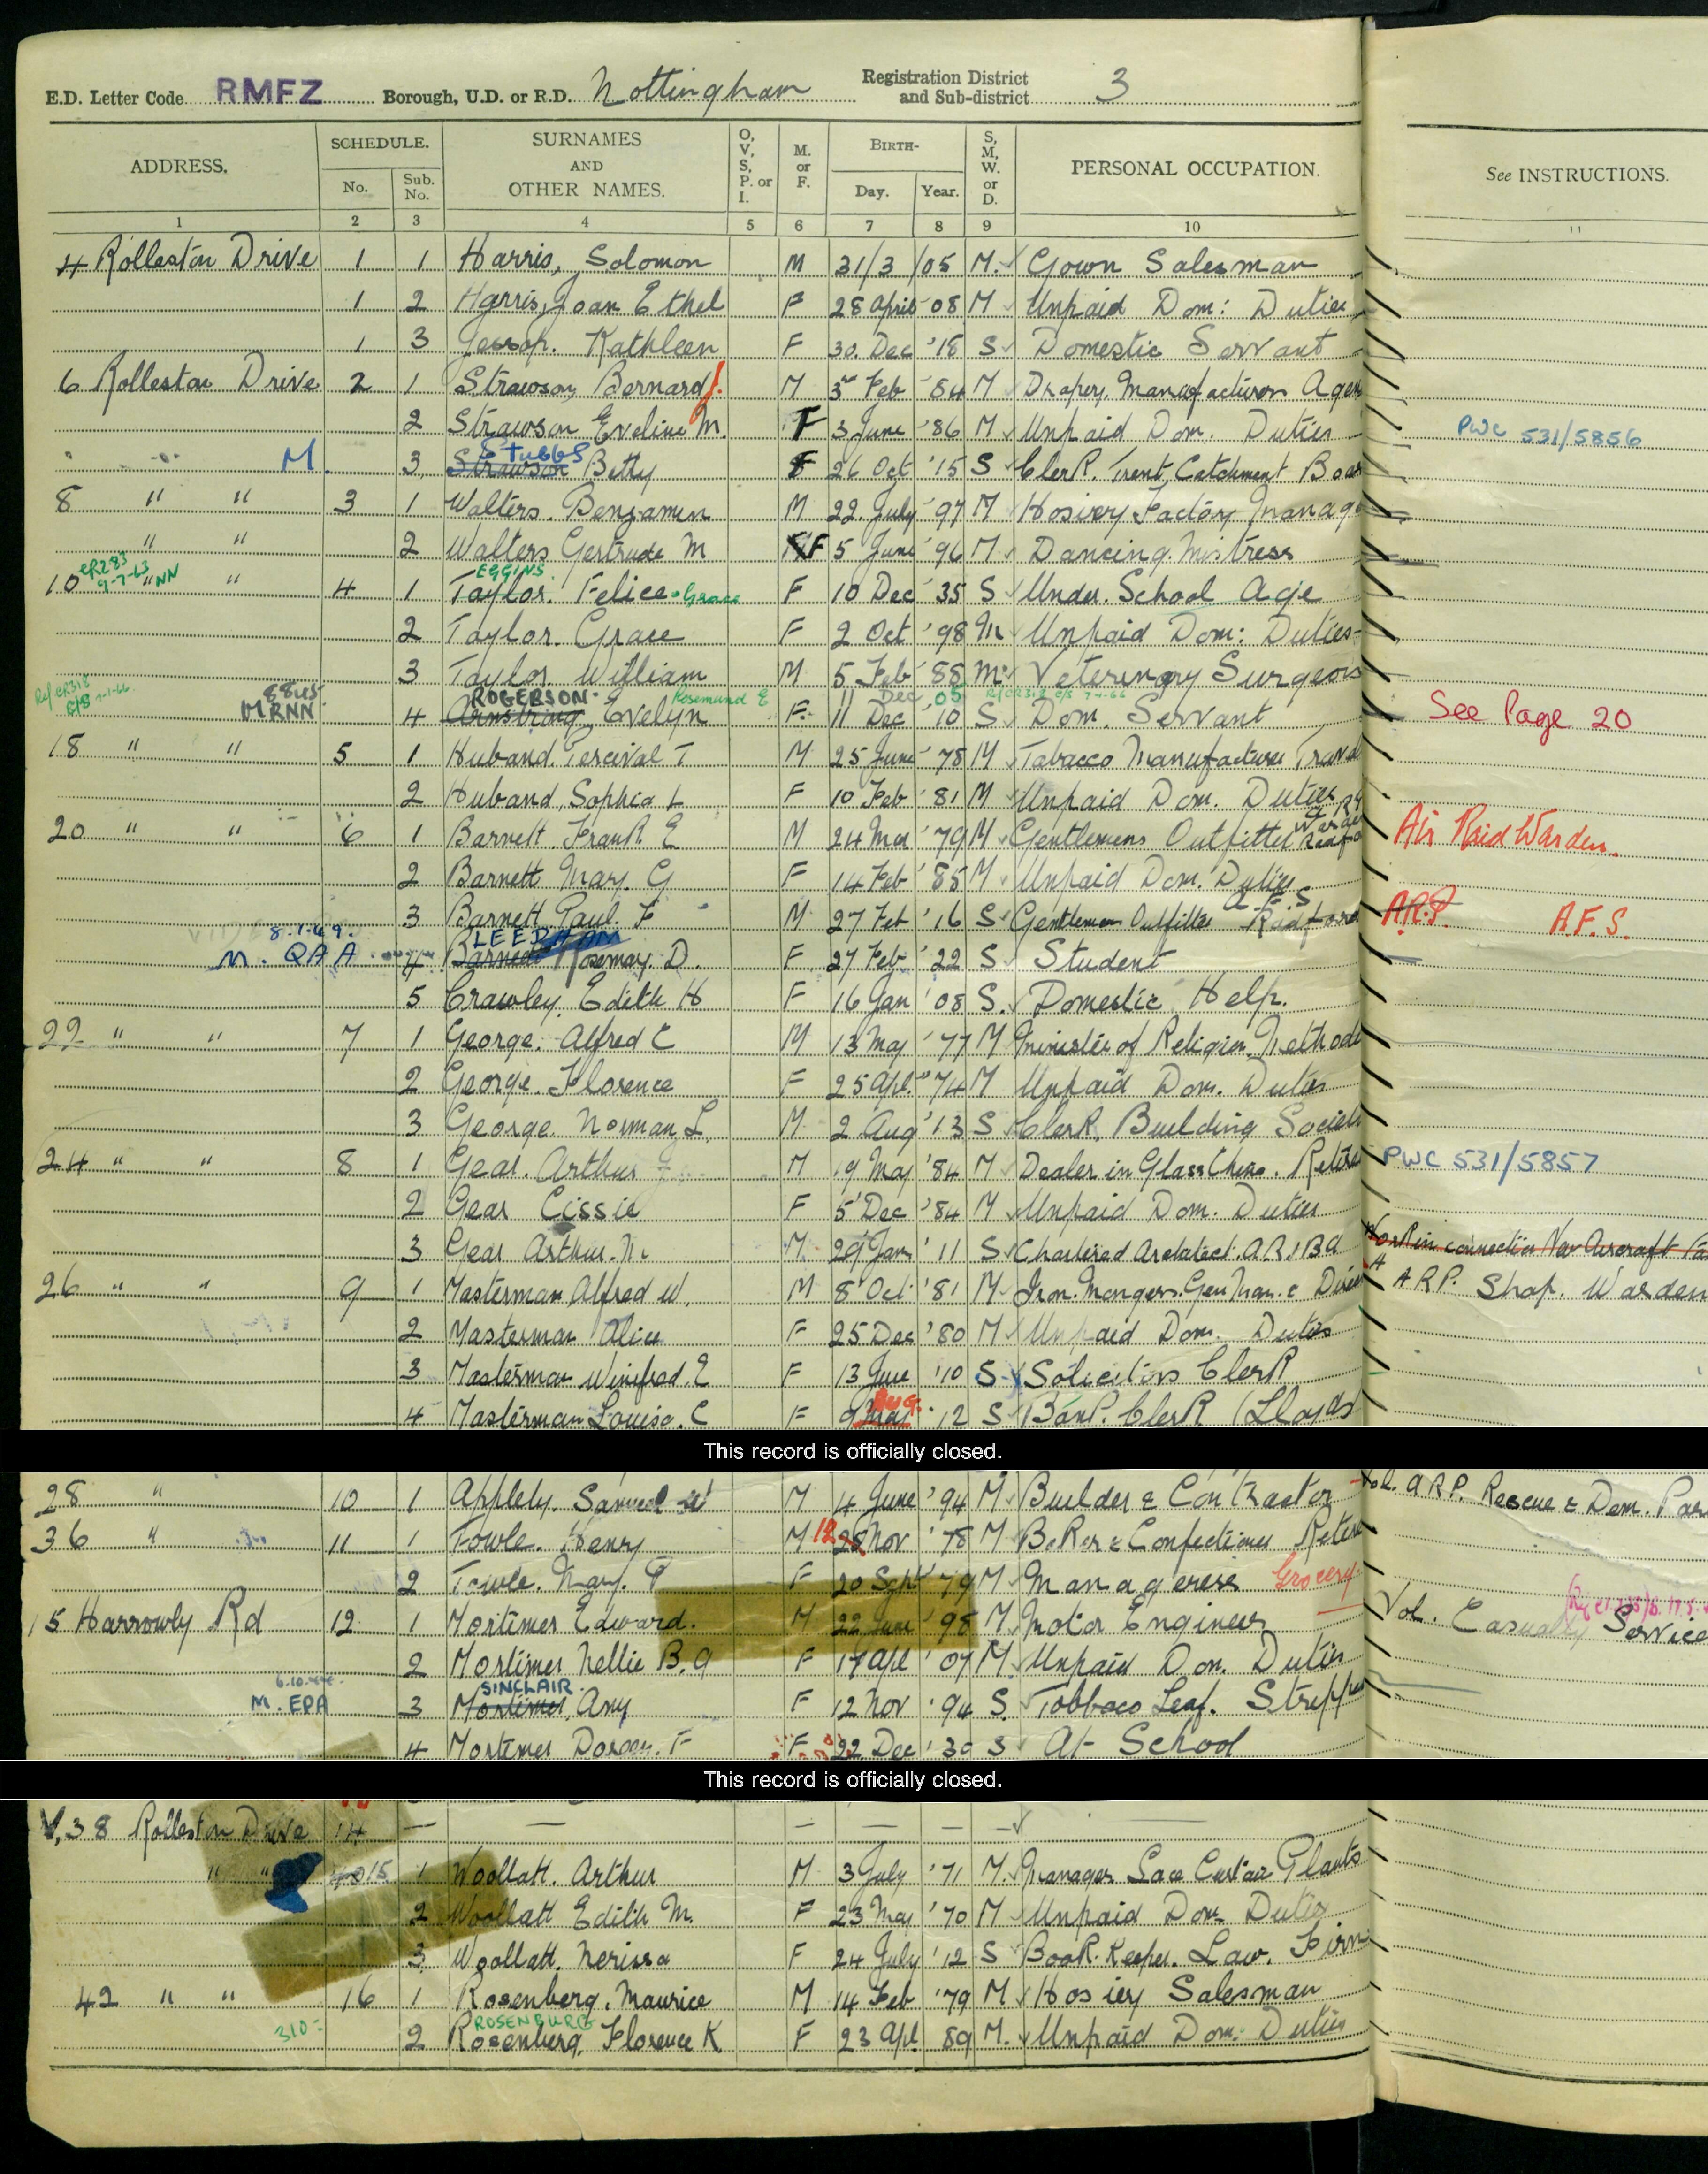 E.D. Letter Code RMFZ Borough, U.D. or R.D. Nottingham Registration District and Sub-district 3
ADDRESS. SCHEDULE. No. Sub. No. SURNAMES AND OTHER NAMES. O, V, S, P. or I. M. or F. BIRTH- Day. Year. S, M, W. or D. PERSONAL OCCUPATION. See INSTRUCTIONS.
1 2 3 4 5 6 7 8 9 10 11
4 Rolleston Drive 1 1 Harris, Solomon M 31/3/05 M. Gown Salesman
1 2 Harris, Joan Ethel F 28 April '08 M Unpaid Dom: Duties
1 3 Jessop. Kathleen F 30. Dec '18 S Domestic Servant
6 Rolleston Drive 2 1 Strawson, Bernard J. M 3 Feb '84 M Drapery, Manufacturers Agen
2 Strawson Eveline M. F 3 June '86 M Unpaid Dom. Duties PWC 531/5856
Stubbs
M. 3 Strawson Betty F 26 Oct '15 S Clerk. Trent Catchment Boar
8 " " 3 1 Walters. Benjamin M 22. July '97 M Hosiery Factory Manag
" " 2 Walters Gertrude M F 5 June '96 M Dancing Mistress
EGGINS
10 " " 4 1 Taylor. Felice Grace F 10 Dec '35 S Under School Age
2 Taylor. Grace F 2 Oct '98 M Unpaid Dom: Duties
3 Taylor William M 5 Feb '88 M Veterinary Surgeon
ROGERSON Rosemund E 11 Dec 05
MRNN 4 Armstrong Evelyn F. 11 Dec '10 S Dom. Servant See Page 20
18 " " 5 1 Huband. Percival T M 25 June '78 M Tobacco Manufacture Travel
2 Huband, Sophia L F 10 Feb '81 M Unpaid Dom. Duties
20 " " 6 1 Barnett. Frank. E M 24 Mar '79 M Gentlemens Outfitter Air Raid Warden.
2 Barnett Mary. G F 14 Feb '85 M Unpaid Dom. Duties
A.F.S
3 Barnett. Paul. F M 27 Feb '16 S Gentlemen Outfitter Radford A.R.P. A.F.S.
8.1.49. LEEDHAM
M. QAA 4 Barnett Rosemary. D. F 27 Feb '22 S Student
5 Crawley. Edith H F 16 Jan '08 S. Domestic Help.
22 " " 7 1 George. Alfred E M 13 May '77 M Minister of Religion. Methodi
2 George. Florence F 25 Apl. '74 M Unpaid Dom. Duties
3 George. Norman L. M. 2 Aug '13 S Clerk. Building Societ
24 " " 8 1 Gear. Arthur M 19 May '84 M Dealer in Glass China. Retire PWC 531/5857
2 Gear Cissie F 5 Dec '84 M Unpaid Dom. Duties
3 Gear Arthur. M. M 29 Jan '11 S Chartered Architect. A.R.I.B.A Work in connection New Aircraft
26 " " 9 1 Masterman Alfred W. M 8 Oct. '81 M. Iron Mongers. Gen Man. & Dire A.R.P. Shop. Warden
2 Masterman Alice F 25 Dec '80 M Unpaid Dom. Duties
3 Masterman Winifred. E F 13 June '10 S Solicitors Clerk
Aug.
4 Masterman Louise. C F 9 May '12 S Bank Clerk (Lloyds
This record is officially closed.
28 " 10 1 Appleby. Samuel W M 4 June '94 M Builder & Contractor Vol. A.R.P. Rescue & Dem. Par
36 " 11 1 Fowle. Henry M 12 28 Nov '78 M Baker & Confectioner Retire
2 Fowle. Mary. F 20 Sept '79 M Manageress Grocery
15 Harrowby Rd 12 1 Mortimer Edward. M 22 June '98 M Motor Engineer Vol. Casualty Service
2 Mortimer Nellie B.G F 17 Apl '07 M. Unpaid Dom. Duties
SINCLAIR
M. EPA 3 Mortimer, Amy F 12 Nov '94 S. Tobbaco Leaf. Stripper
4 Mortimer Doreen. F F 22 Dec '30 S At School
This record is officially closed.
V. 38 Rolleston Drive 14 — — — — — —
" " 15 1 Woollatt. Arthur M 3 July '71 M. Manager Lace Curtain Plants
2 Woollatt Edith M. F 23 May '70 M Unpaid Dom Duties
3 Woollatt. Nerissa F 24 July '12 S Book. Keeper. Law. Firm
42 " " 16 1 Rosenberg. Maurice M 14 Feb '79 M Hosiery Salesman
ROSENBURG
310 2 Rosenberg, Florence K F 23 Apl 89 M. Unpaid Dom: Duties